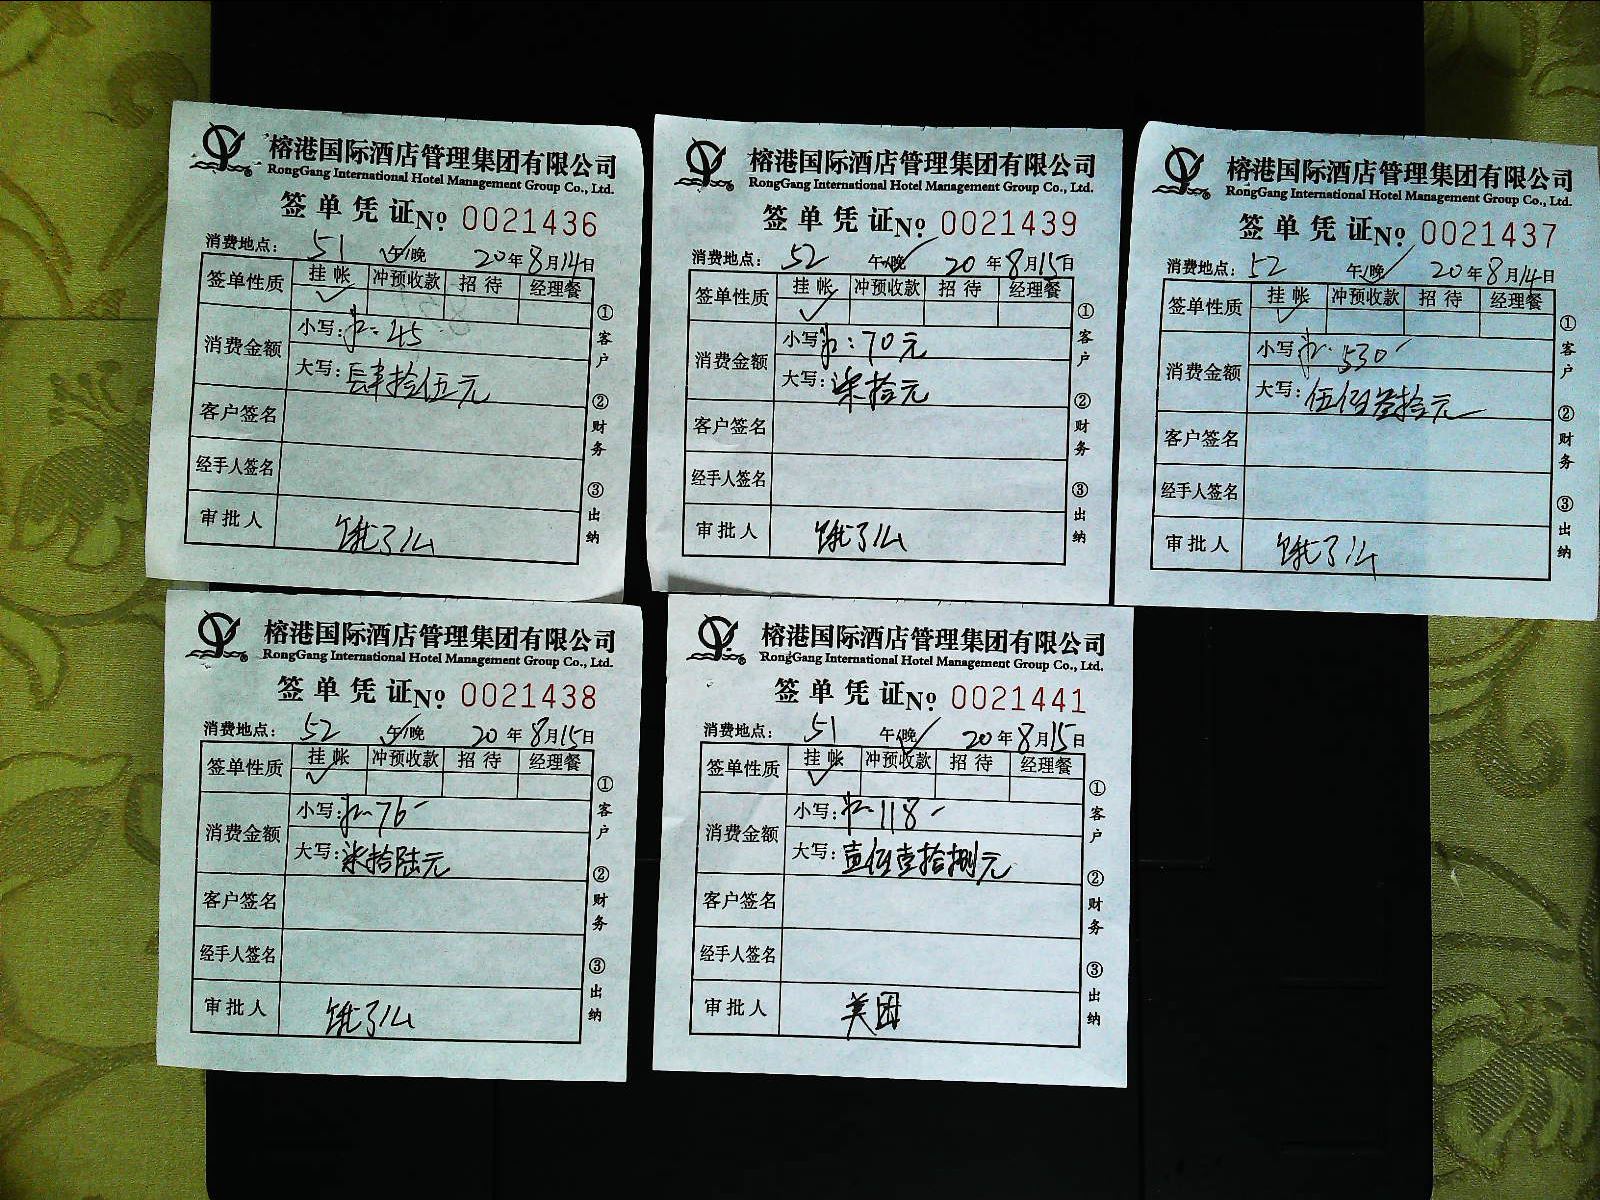 榕港国际酒店管理集团有限公司
RongGang International Hotel Management Group Co., Ltd.
签单凭证 No 0021436
消费地点: 51 午/晚 20年8月14日
签单性质 挂帐 冲预收款 招待 经理餐
消费金额 小写: 45
大写: 肆拾伍元
客户签名
经手人签名
审批人 饿了么
①客户 ②财务 ③出纳
榕港国际酒店管理集团有限公司
RongGang International Hotel Management Group Co., Ltd.
签单凭证 No 0021439
消费地点: 52 午/晚 20年8月15日
签单性质 挂帐 冲预收款 招待 经理餐
消费金额 小写: 70元
大写: 柒拾元
客户签名
经手人签名
审批人 饿了么
①客户 ②财务 ③出纳
榕港国际酒店管理集团有限公司
RongGang International Hotel Management Group Co., Ltd.
签单凭证 No 0021437
消费地点: 52 午/晚 20年8月14日
签单性质 挂帐 冲预收款 招待 经理餐
消费金额 小写: 530
大写: 伍佰叁拾元
客户签名
经手人签名
审批人 饿了么
①客户 ②财务 ③出纳
榕港国际酒店管理集团有限公司
RongGang International Hotel Management Group Co., Ltd.
签单凭证 No 0021438
消费地点: 52 午/晚 20年8月15日
签单性质 挂帐 冲预收款 招待 经理餐
消费金额 小写: 76
大写: 柒拾陆元
客户签名
经手人签名
审批人 饿了么
①客户 ②财务 ③出纳
榕港国际酒店管理集团有限公司
RongGang International Hotel Management Group Co., Ltd.
签单凭证 No 0021441
消费地点: 51 午/晚 20年8月15日
签单性质 挂帐 冲预收款 招待 经理餐
消费金额 小写: 118
大写: 壹佰壹拾捌元
客户签名
经手人签名
审批人 美团
①客户 ②财务 ③出纳